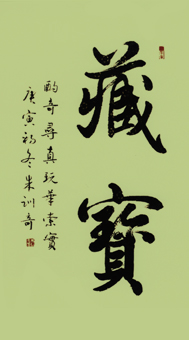 藏寶
酌奇尋真玩華索實
庚寅初冬朱訓奇